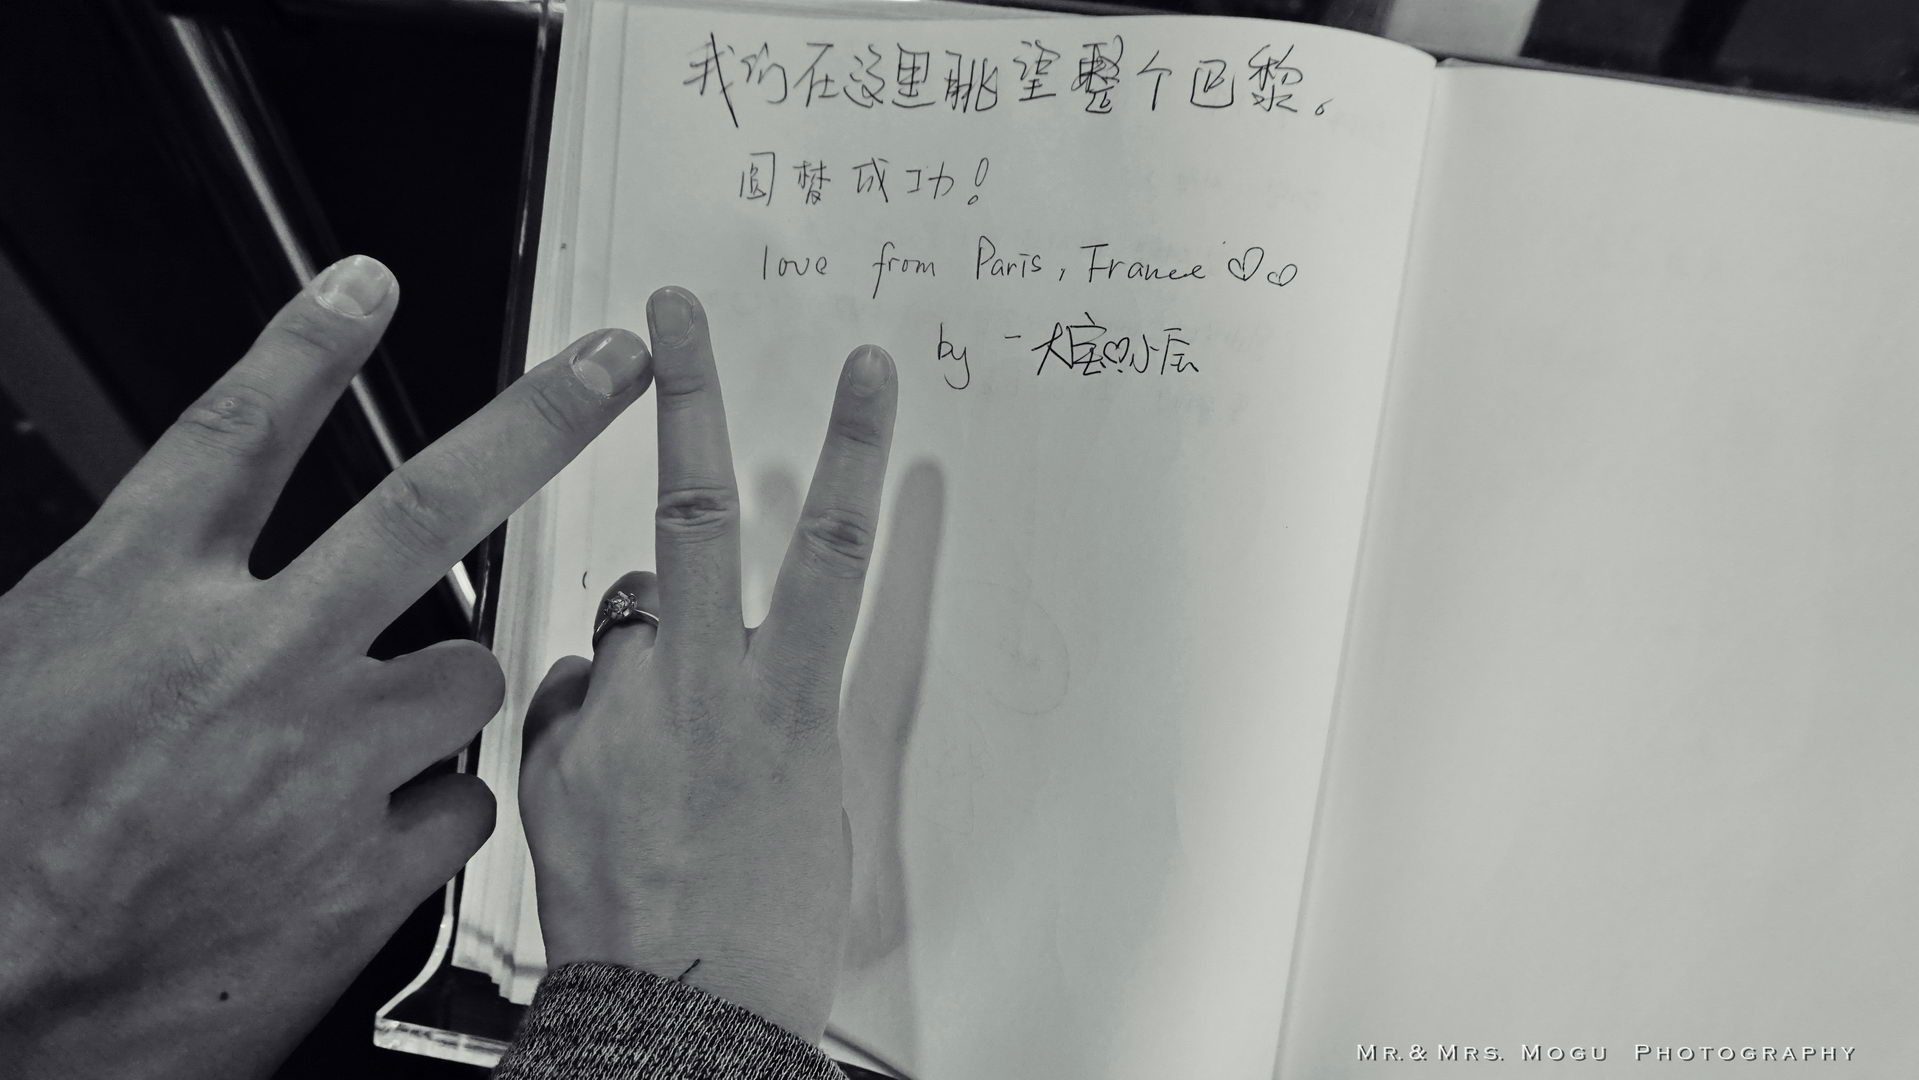 我们在这里眺望整个巴黎。
圆梦成功！
love from Paris, France ♡♡
by - 大宝♡小
MR.& MRS. MOGU PHOTOGRAPHY